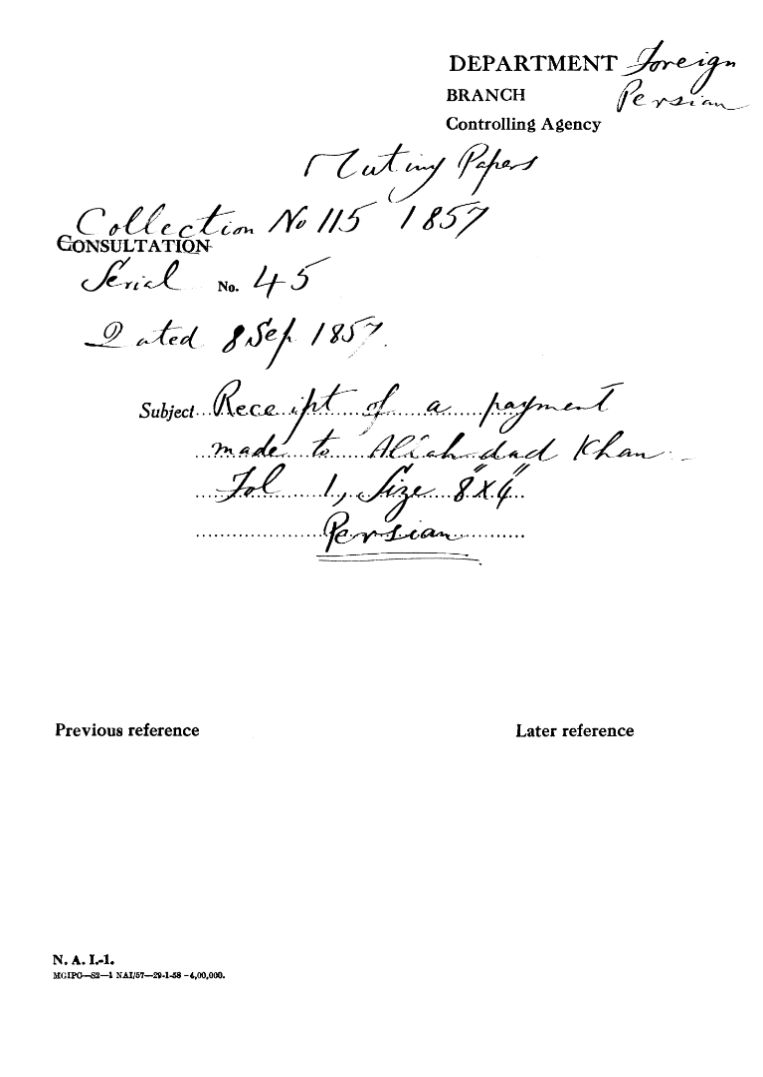 DEPARTMENT Foreign
BRANCH Persian
Controlling Agency
Mutiny Papers
Collection No 115 1857
CONSULTATION
Serial No. 45
Dated 8 Sep. 1857.
Subject...Receipt of a payment
made to Aliahdad Khan
Fol 1, Size 8"X4"
Persian
Previous reference Later reference
N. A. I.-1.
MGIPC—S2—1 NAI/57—29-1-58 –4,00,000.